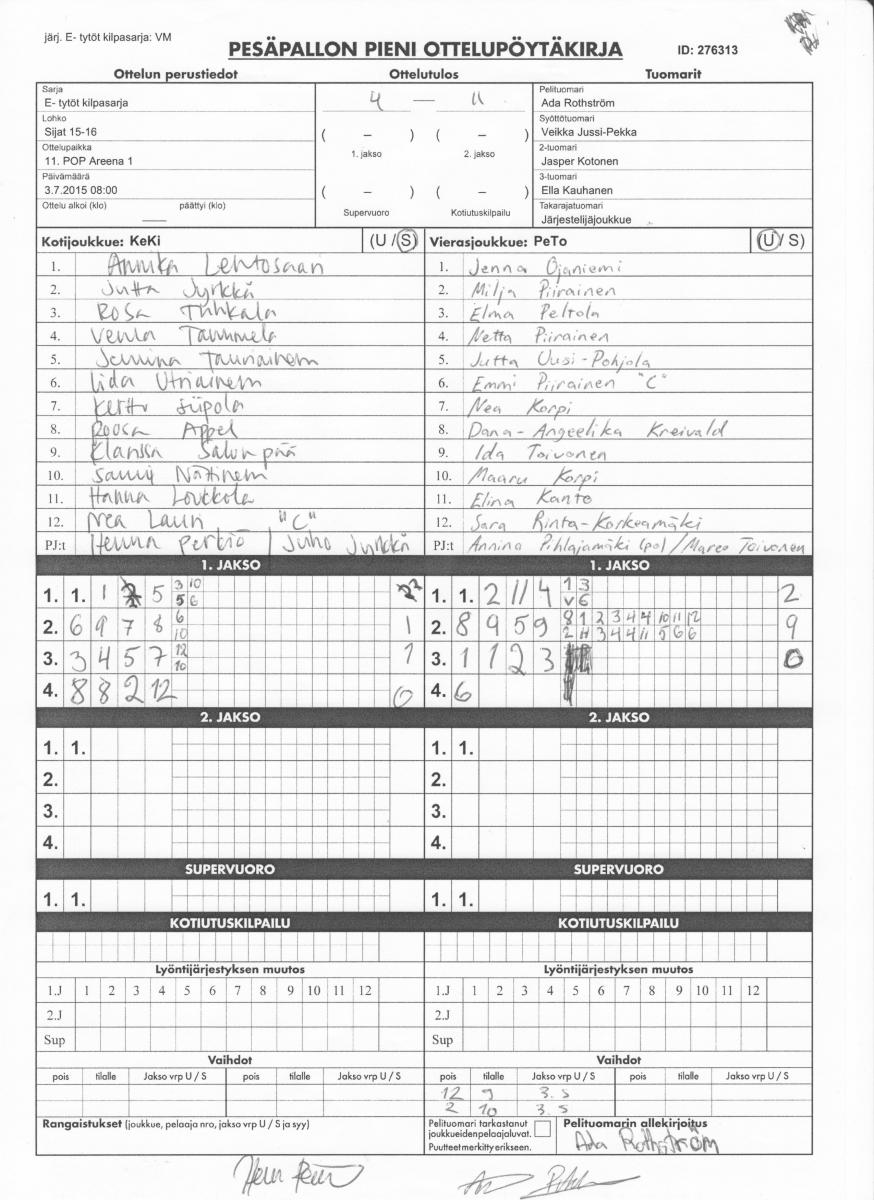 järj. E- tytöt kilpasarja: VM
PESÄPALLON PIENI OTTELUPÖYTÄKIRJA
ID: 276313
Ottelun perustiedot Ottelutulos Tuomarit
Sarja
E- tytöt kilpasarja
Lohko
Sijat 15-16
Ottelupaikka
11. POP Areena 1
Päivämäärä
3.7.2015 08:00
Ottelu alkoi (klo) päättyi (klo)
4 — 11
( – ) ( – )
1. jakso 2. jakso
( – ) ( – )
Supervuoro Kotiutuskilpailu
Pelituomari
Ada Rothström
Syöttötuomari
Veikka Jussi-Pekka
2-tuomari
Jasper Kotonen
3-tuomari
Ella Kauhanen
Takarajatuomari
Järjestelijäjoukkue
Kotijoukkue: KeKi (U / S)
1. Annika Lehtosaari
2. Jutta Jyrkkä
3. Rosa Tuhkala
4. Venla Tammela
5. Jemina Tauriainen
6. Iida Utriainen
7. Kerttu Siipola
8. Roosa Appel
9. Klarissa Salonpää
10. Sanni Nättinen
11. Hanna Loukkola
12. Nea Lauri "C"
PJ:t Henna Perkiö / Juho Jyrkkä
Vierasjoukkue: PeTo (U / S)
1. Jenna Ojaniemi
2. Milja Piirainen
3. Elma Peltola
4. Netta Piirainen
5. Jutta Uusi-Pohjola
6. Emmi Piirainen "C"
7. Nea Korpi
8. Dana-Angeelika Kreivald
9. Ida Toivonen
10. Maaru Korpi
11. Elina Kanto
12. Sara Rinta-Korkeamäki
PJ:t Annina Pihlajamäki (pj) / Marco Toivonen
1. JAKSO
1. 1. 1 5 3 10 2
5 6
2. 6 9 7 8 6 1
10
3. 3 4 5 7 12 1
10
4. 8 8 2 12 0
1. JAKSO
1. 1. 2 11 4 1 3 2
V 6
2. 8 9 5 9 8 1 2 3 4 4 10 11 12 9
2 11 3 4 4 11 5 6 6
3. 1 1 2 3 0
4. 6
2. JAKSO
1. 1.
2.
3.
4.
2. JAKSO
1. 1.
2.
3.
4.
SUPERVUORO SUPERVUORO
1. 1. 1. 1.
KOTIUTUSKILPAILU KOTIUTUSKILPAILU
Lyöntijärjestyksen muutos Lyöntijärjestyksen muutos
1.J 1 2 3 4 5 6 7 8 9 10 11 12 1.J 1 2 3 4 5 6 7 8 9 10 11 12
2.J 2.J
Sup Sup
Vaihdot Vaihdot
pois tilalle Jakso vrp U / S pois tilalle Jakso vrp U / S pois tilalle Jakso vrp U / S pois tilalle Jakso vrp U / S
12 9 3. S
2 10 3. S
Rangaistukset (joukkue, pelaaja nro, jakso vrp U / S ja syy)
Pelituomari tarkastanut
joukkueidenpelaajaluvat.
Puutteetmerkittyerikseen.
Pelituomarin allekirjoitus
Ada Rothström